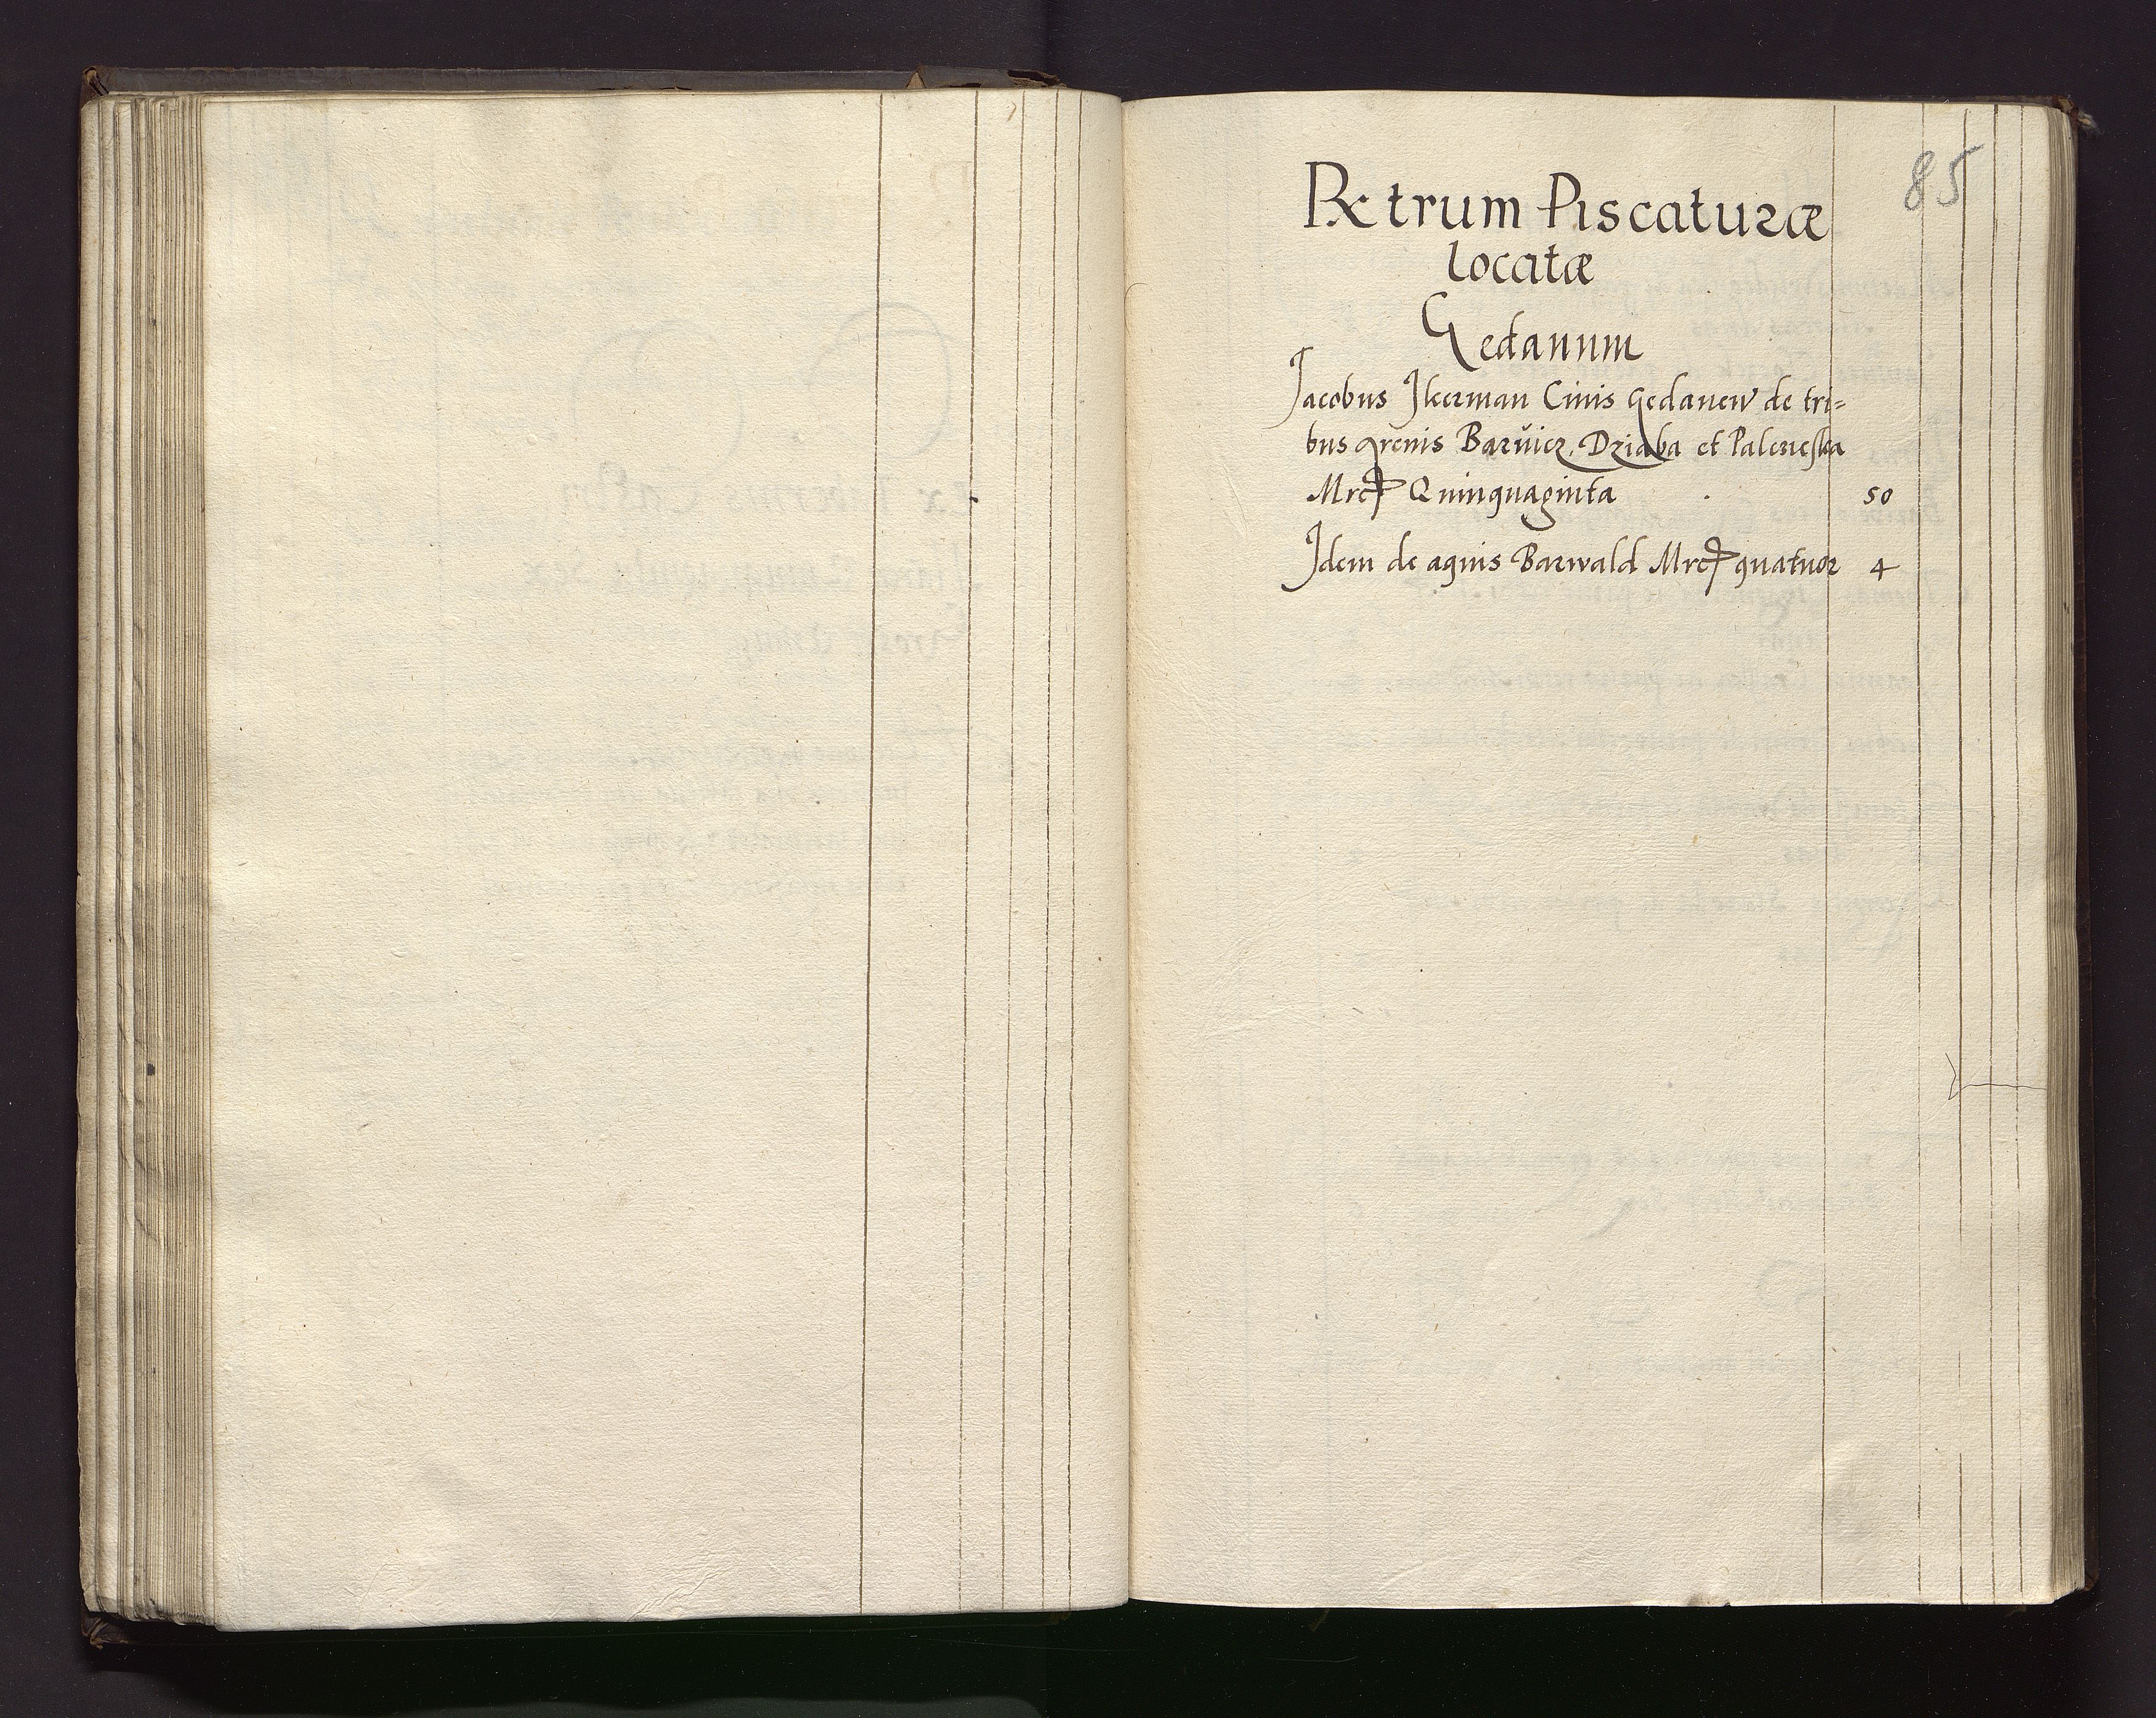 85
Rctrum Piscaturæ
locatæ
Gedanum
Jacobus Jkerman Ciuis Gedanen de tri=
bus grenis Barŭicz, Dziaba et Paleneska
Mrc Quinquaginta 50
Jdem de aquis Barwald Mrc quatuor 4